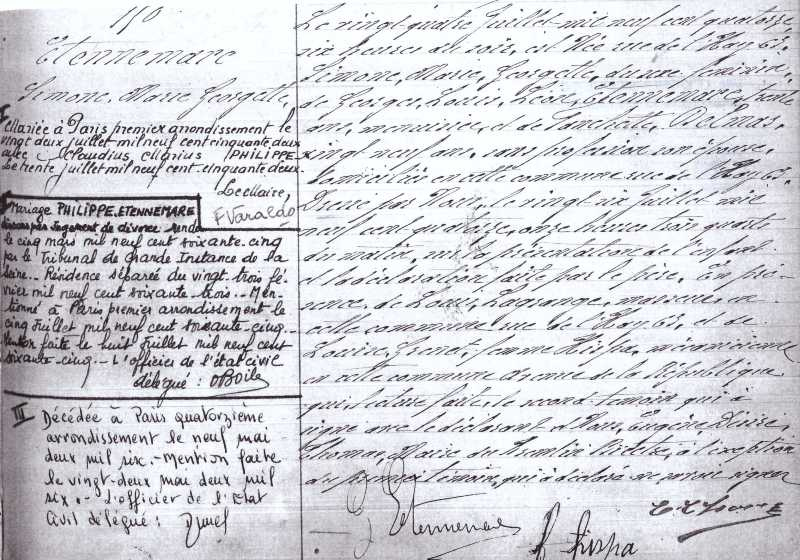 150
Etennemare
Simone, Marie Georgette,
I
Mariée à Paris premier arrondissement le
vingt deux juillet mil neuf cent cinquante deux
avec Claudius Marius PHILIPPE
Le trente juillet mil neuf cent cinquante deux
Le Maire,
F Varaldo
Mariage PHILIPPE.ETENNEMARE
dissous par jugement de divorce rendu
le cinq mars mil neuf cent soixante.cinq
par le Tribunal de Grande Instance de la
Seine.. Résidence séparée du vingt.trois fé-
vrier mil neuf cent soixante.trois.- Men-
tionné à Paris premier arrondissement le
cinq juillet mil neuf cent soixante.cinq.-
Mention faite le huit juillet mil neuf cent
soixante.cinq.- L'officier de l'état civil
délégué :
III
Décédée à Paris quatorzième
arrondissement le neuf mai
deux mil six.-Mention faite
le vingt-deux mai deux mil
six.- L'officier de l'Etat
Civil délégué :
Le vingt quatre Juillet mil neuf cent quatorze,
six heures du soir, est née rue de l'Hay 63,
Simone, Marie, Georgette, du sexe féminin,
de Georges, Louis, Léon, Etennemare, trente
ans, menuisier, et de Delmas,
vingt neuf ans, sans profession son épouse,
domiciliés en cette commune rue de l'Hay 63,
Dressé par Nous, le vingt six Juillet mil
neuf cent quatorze, onze heures trois quart
du matin, sur la présentation de l'enfant
et la déclaration faite par le père. En pré-
sence de Louis, Lagrange, en
cette commune rue de l'Hay 63, et de
Louise, femme Rispa, mécanicienne
en cette commune de la République
qui, lecture faite, le second témoin qui a
signé avec le déclarant et Nous, Eugène
Thomas, Maire du Kremlin Bicêtre, à l'exception
du premier témoin, qui a déclaré ne savoir signer
Etennemare
Rispa